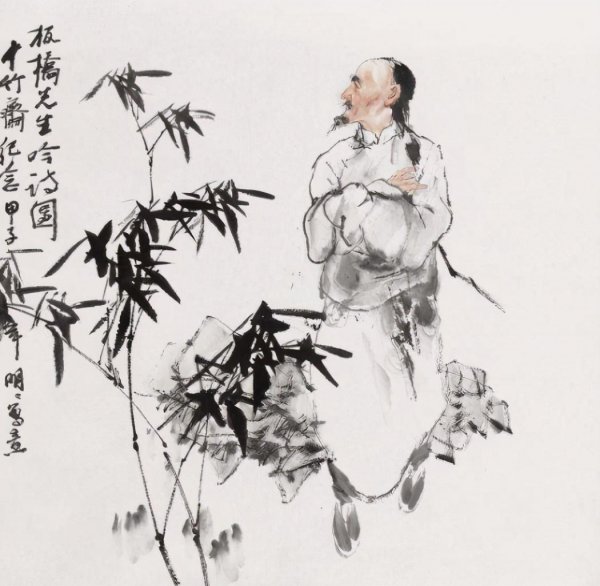 板橋先生吟詩圖
十竹齋紀念甲子 明明寫意